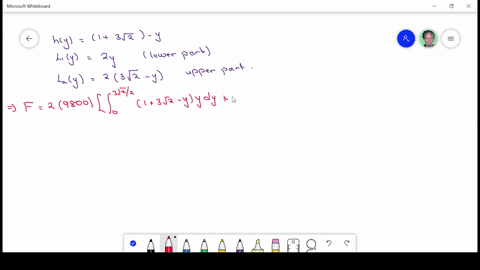 Microsoft Whiteboard
h(y) = (1+3√2) - y
L₁(y) = 2y (lower part)
L₂(y) = 2(3√2 - y) upper part.
⇒ F = 2(9800) [∫₀^{3√2/2} (1+3√2-y) y dy +